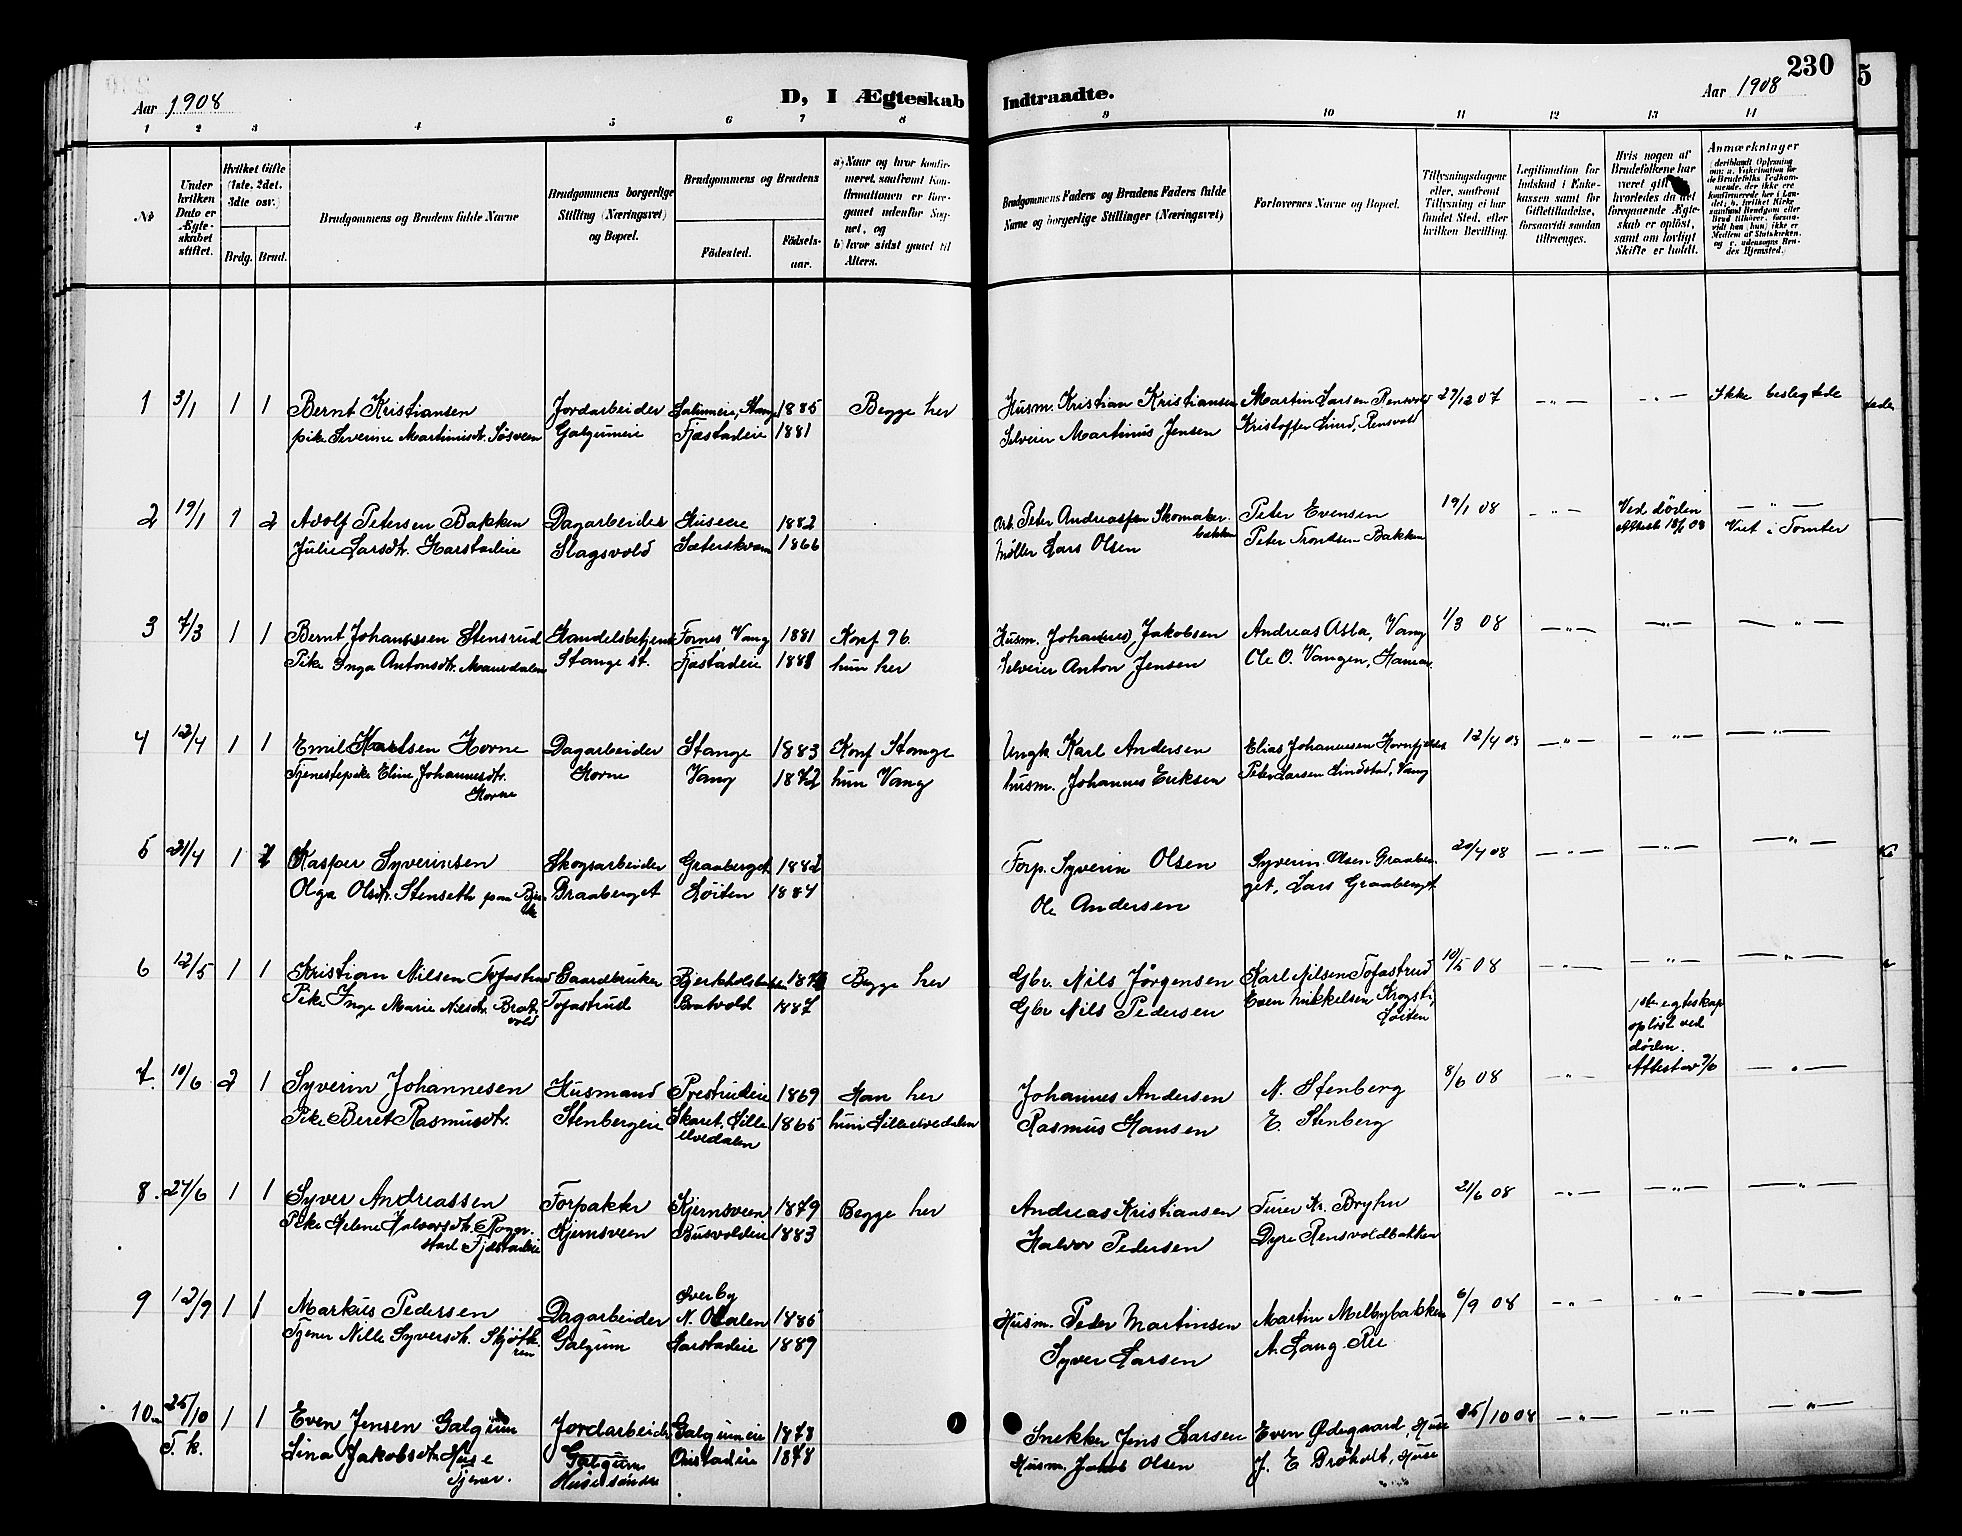 230
5
Aar 1908
D, I Ægteskab Indtraadte.
Aar 1908
1 2 3 4 5 6 7 8 9 10 11 12 13 14
No
Under hvilken Dato er Ægteskabet stiftet.
Hvilket Gifte (1ste, 2det, 3die osv.)
Brdg. Brud.
Brudgommens og Brudens fulde Navne
Brudgommens borgerlige Stilling (Næringsvei) og Bopæl.
Brudgommens og Brudens
Födested.
Födsels-aar.
a) Naar og hvor konfirmeret, saafremt Konfirmationen er foregaaet udenfor Sognet, og
b) hvor sidst gaaet til Alters.
Brudgommens Faders og Brudens Faders fulde Navne og borgerlige Stillinger (Næringsvei)
Forlovernes Navne og Bopæl.
Tillysningsdagene eller, saafremt Tillysning ei har fundet Sted, efter hvilken Bevilling.
Legitimation for Indskud i Enkekassen samt for Giftetilladelse, forsaavidt saadan tiltrænges.
Hvis nogen af Brudefolkene har været gift hvorledes da det foregaaende Ægteskab er oplöst, samt om lovligt Skifte er holdt.
Anmærkninger
1 3/1 1 1 Bernt Kristiansen Jordarbeider Stange 1885 Begge her Husm. Kristian Kristiansen Martin Larsen Rensvold 29/12 07 -"- -"- Ikke beslegtede
pike Severine Martinusdtr. Galgumeie Fjæstadeie 1881 Selveier Martinus Jensen Kristoffer Lund, Rensvold
2 19/1 1 2 Adolf Petersen Bakken Dagarbeider Huseeie 1882 Arb. Peter Andreassen Skomaker-bakken Peter Evensen 19/1 08 -"- Ved døden -"-
Julie Larsdtr. Harstadeie Slagsvold Sæterskvern 1866 Møller Lars Olsen Peter Trondsen Bakken Attest 18/1 08 Viet i Tomter
3 7/3 1 1 Bernt Johannessen Stensrud Handelsbetjent Fornes, Vang 1881 Konf 96. Husm. Johannes Jakobsen Andreas Asla, Vang 1/3 08 -"- -"- -"-
Pike Inga Antonsdtr. Maursdalen Stange st. Fjæstadeie 1881 hun her Selveier Anton Jensen Ole O. Vangen, Hamar
4 12/4 1 1 Emil Karlsen Horne Dagarbeider Stange 1883 Konf Stange Ungk Karl Andersen Elias Johannesen 12/4 08 -"- -"- -"-
Tjenestepike Eline Johannesdtr. Horne Horne Vang 1872 hun Vang husm. Johannes Eriksen Peter Larsen Lindstad, Vang
5 21/4 1 1 Kasper Syverinsen Skogsarbeider Graaberget 1882 Forp. Syverin Olsen Syverin Olsen Graaber- 20/4 08 -"- -"- -"-
Olga Olsdtr. Stenseth paa Graaberget Løiten 1884 Ole Andersen get, Lars Graaberget
6 12/5 1 1 Kristian Nilsen Tofastrud Gaardbruker Bjerkholsbakken Begge her Gbr. Nils Jørgensen Karl Nilsen Tofastrud 10/5 08 -"- -"- -"-
Pike Inge Marie Nilsdtr. Bratvold Tofastrud Bratvold 1887 Gbr Nils Pedersen Even Mikkelsen Løiten
7. 10/6 2 1 Syverin Johannesen Husmand Prestrudeie 1869 Han her Johannes Andersen N. Stenberg 8/6 08 -"- 1ste egteskap opløst ved døden. Attest av 9/6 -"-
Pike Beret Rasmusdtr. Stenbergeie Skaret, Lille elvedalen 1865 hun Lilleelvedalen Rasmus Hansen E. Stenberg
8. 24/6 1 1 Syver Andreassen Forpakter Kjernsveen 1879 Begge her Andreas Kristiansen Kr. Bryhn 21/6 08 -"- -"- -"-
Pike Helene Halvorsdtr. Rogerstad Fjæstadeie Kjernsveen Busvoldeie 1883 Halvor Pedersen Dyre Rensvoldbakken
9 12/9 1 1 Markus Pedersen Dagarbeider Øverby N. Odalen 1885 Husm. Peder Martinsen Martin Melbybakken 6/9 08 -"- -"- -"-
Tjener Nille Syversdtr. Galgum Harstadeie 1889 Syver Larsen A. Lang-Ree
10. 25/10 1 1 Even Jensen Galgum Jordarbeider Galgumeie 1878 Snekker Jens Larsen Even Ødegaard, Huse 25/10 08 -"- -"- -"-
T. k. Lina Jakobsdtr. Huse Tjener. Galgum Husesøndre 1878 Husm. Jakob Olsen J. E Brøholt, Huse